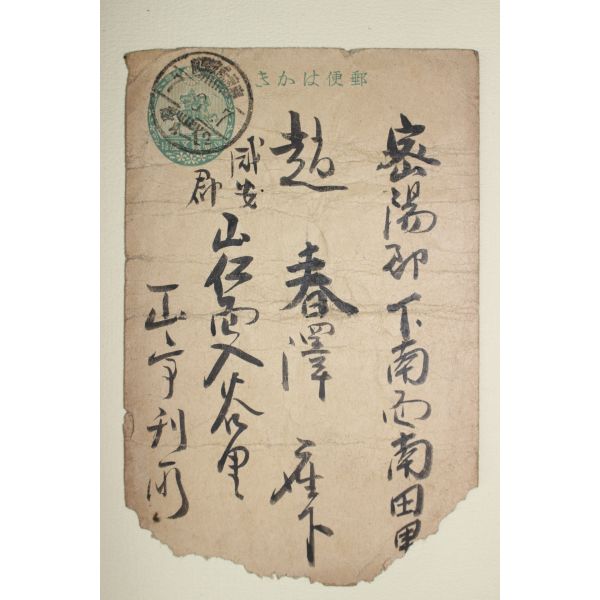 郵便はかき
密陽郡下南面南田里
趙春澤座下
咸安郡
山仁面入谷里